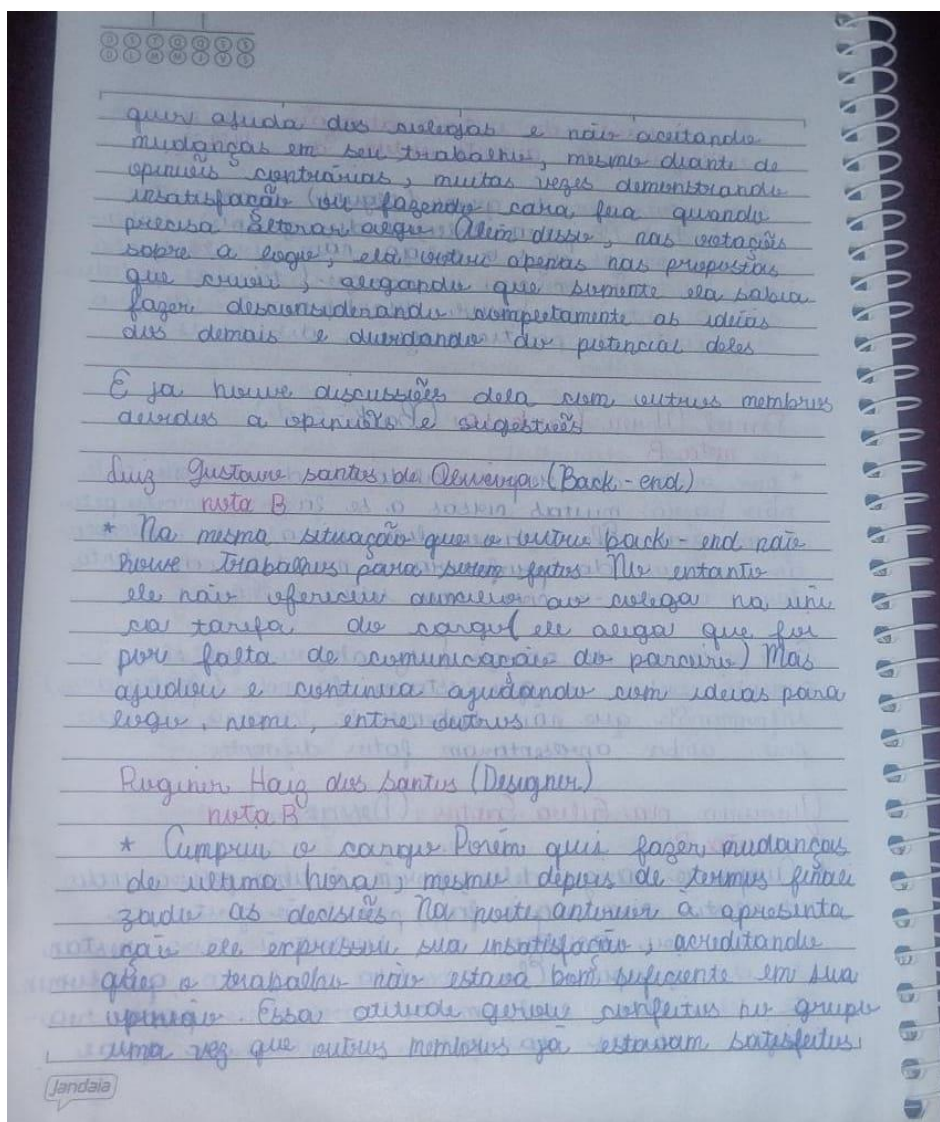 D S T Q Q S S
D L M M J V S
quer ajuda dos colegas e não aceitando
mudanças em seu trabalho, mesmo diante de
opiniões contrárias, muitas vezes demonstrando
insatisfação ou fazendo cara feia quando
precisa alterar algo Além disso, nas votações
sobre a logo, ela votou apenas nas propostas
que criou, alegando que somente ela sabia
fazer desconsiderando completamente as ideias
dos demais e duvidando do potencial deles
E ja houve discussões dela com outros membros
devidos a opiniões e sugestões
Luiz Gustavo santos de Oliveira (Back-end)
nota B
* Na mesma situação que o outro back-end não
houve trabalhos para serem feitos No entanto
ele não ofereceu auxílio ao colega na úni
ca tarefa do cargo (ele alega que foi
por falta de comunicação do parceiro) Mas
ajudou e continua ajudando com ideias para
logo, nome, entre outros
Haig dos Santos (Designer)
nota B
* Cumpriu o cargo. Porém quis fazer mudanças
de ultima hora, mesmo depois de termos finali
zado as decisões Na noite anterior a apresenta
ção ele expressou sua insatisfação, acreditando
que o trabalho não estava bom suficiente em sua
opinião. Essa atitude gerou conflitos no grupo
uma vez que outros membros já estavam satisfeitos
Jandaia